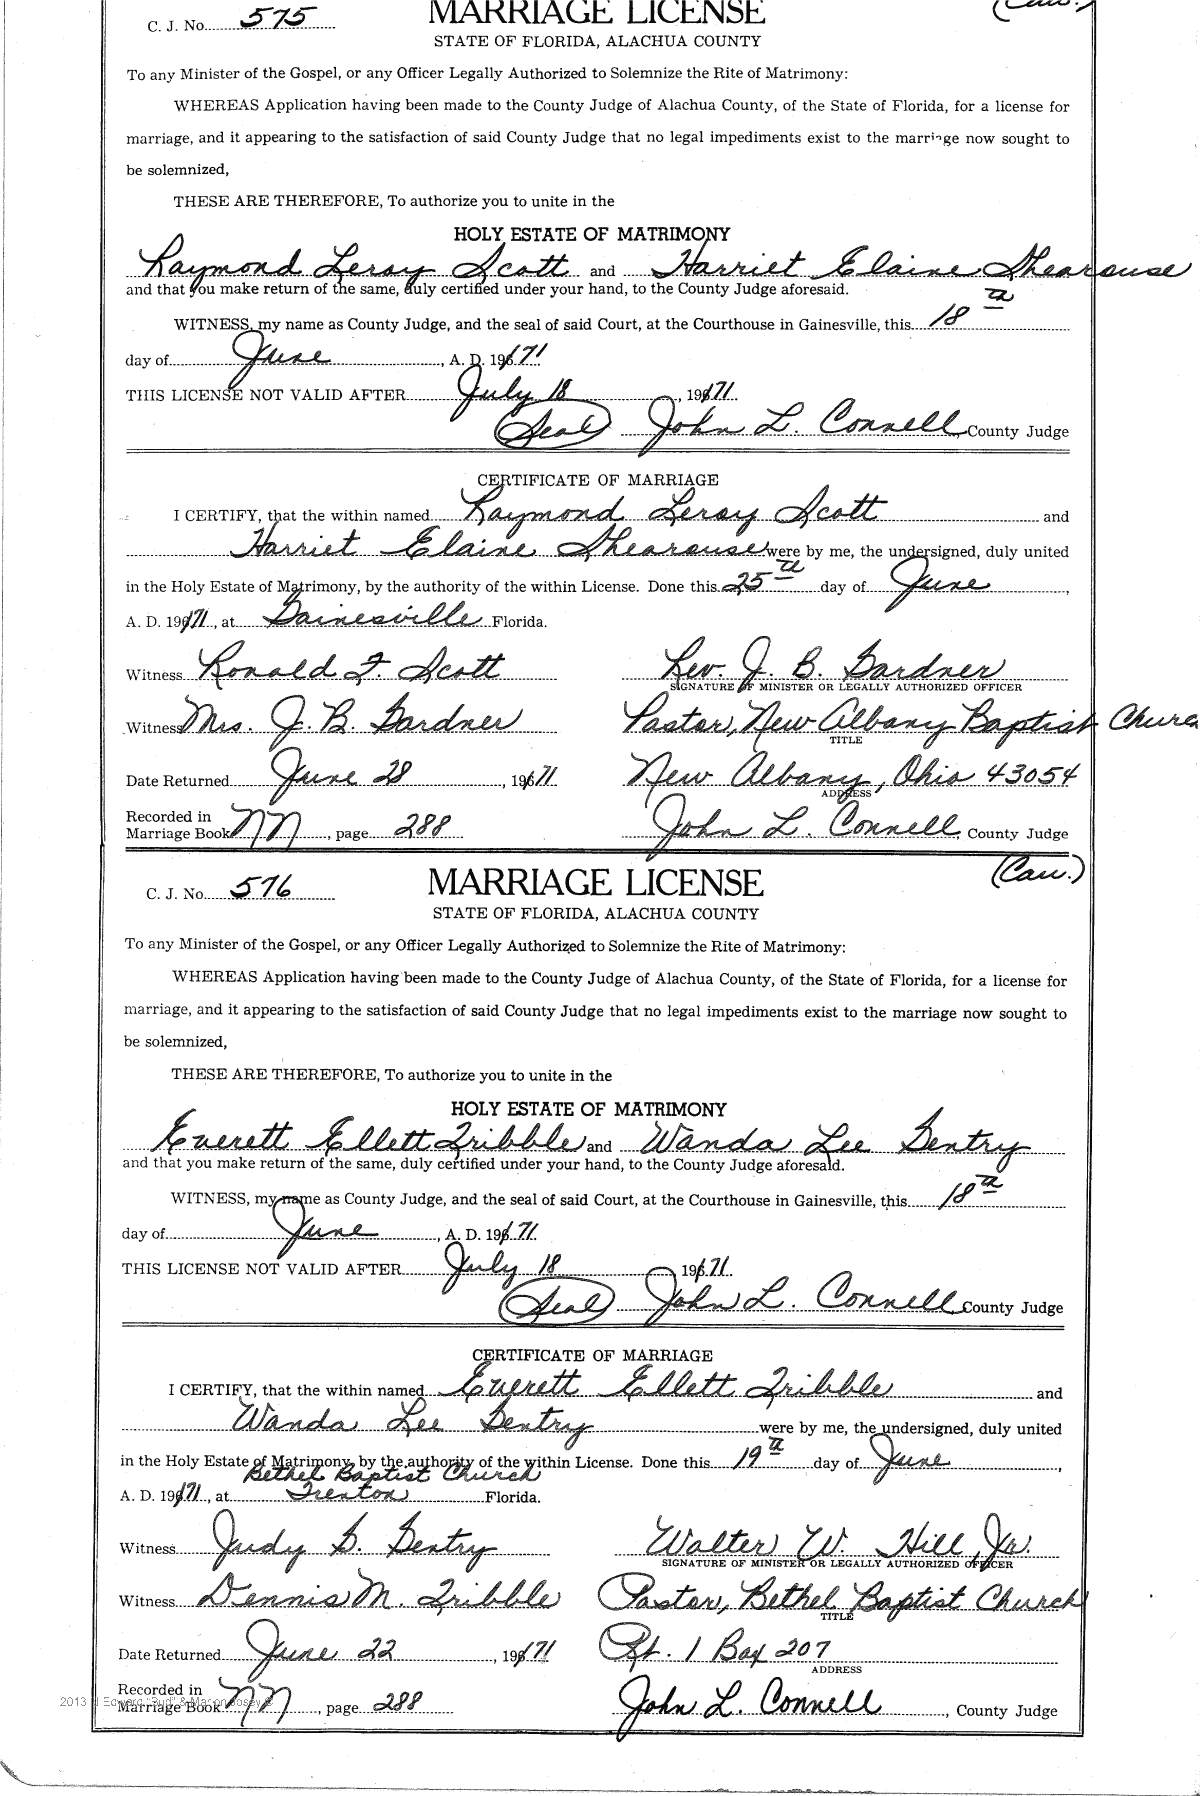 C. J. No. 575 MARRIAGE LICENSE (Cau.)
STATE OF FLORIDA, ALACHUA COUNTY
To any Minister of the Gospel, or any Officer Legally Authorized to Solemnize the Rite of Matrimony:
WHEREAS Application having been made to the County Judge of Alachua County, of the State of Florida, for a license for
marriage, and it appearing to the satisfaction of said County Judge that no legal impediments exist to the marriage now sought to
be solemnized,
THESE ARE THEREFORE, To authorize you to unite in the
HOLY ESTATE OF MATRIMONY
Raymond Leroy Scott and Harriet Elaine Shearouse
and that you make return of the same, duly certified under your hand, to the County Judge aforesaid.
WITNESS, my name as County Judge, and the seal of said Court, at the Courthouse in Gainesville, this 18th
day of June, A. D. 1971
THIS LICENSE NOT VALID AFTER July 18, 1971
(Seal) John L. Connell, County Judge
CERTIFICATE OF MARRIAGE
I CERTIFY, that the within named Raymond Leroy Scott and
Harriet Elaine Shearouse were by me, the undersigned, duly united
in the Holy Estate of Matrimony, by the authority of the within License. Done this 25th day of June,
A. D. 1971, at Gainesville Florida.
Witness Ronald F. Scott Rev. J. B. Gardner
SIGNATURE OF MINISTER OR LEGALLY AUTHORIZED OFFICER
Witness Mrs. J. B. Gardner Pastor, New Albany Baptist Church
TITLE
Date Returned June 28, 1971 New Albany, Ohio 43054
ADDRESS
Recorded in
Marriage Book NN, page 288 John L. Connell, County Judge
C. J. No. 576 MARRIAGE LICENSE (Cau.)
STATE OF FLORIDA, ALACHUA COUNTY
To any Minister of the Gospel, or any Officer Legally Authorized to Solemnize the Rite of Matrimony:
WHEREAS Application having been made to the County Judge of Alachua County, of the State of Florida, for a license for
marriage, and it appearing to the satisfaction of said County Judge that no legal impediments exist to the marriage now sought to
be solemnized,
THESE ARE THEREFORE, To authorize you to unite in the
HOLY ESTATE OF MATRIMONY
Everett Ellett Tribble and Wanda Lee Gentry
and that you make return of the same, duly certified under your hand, to the County Judge aforesaid.
WITNESS, my name as County Judge, and the seal of said Court, at the Courthouse in Gainesville, this 18th
day of June, A. D. 1971
THIS LICENSE NOT VALID AFTER July 18 1971
(Seal) John L. Connell, County Judge
CERTIFICATE OF MARRIAGE
I CERTIFY, that the within named Everett Ellett Tribble and
Wanda Lee Gentry were by me, the undersigned, duly united
in the Holy Estate of Matrimony, by the authority of the within License. Done this 19th day of June,
Bethel Baptist Church
A. D. 1971, at Trenton Florida.
Witness Judy G. Gentry Walter W. Hill, Jr.
SIGNATURE OF MINISTER OR LEGALLY AUTHORIZED OFFICER
Witness Dennis M. Tribble Pastor, Bethel Baptist Church
TITLE
Date Returned June 22, 1971 Rt. 1 Box 207
ADDRESS
Recorded in
Marriage Book NN, page 288 John L. Connell, County Judge
2013